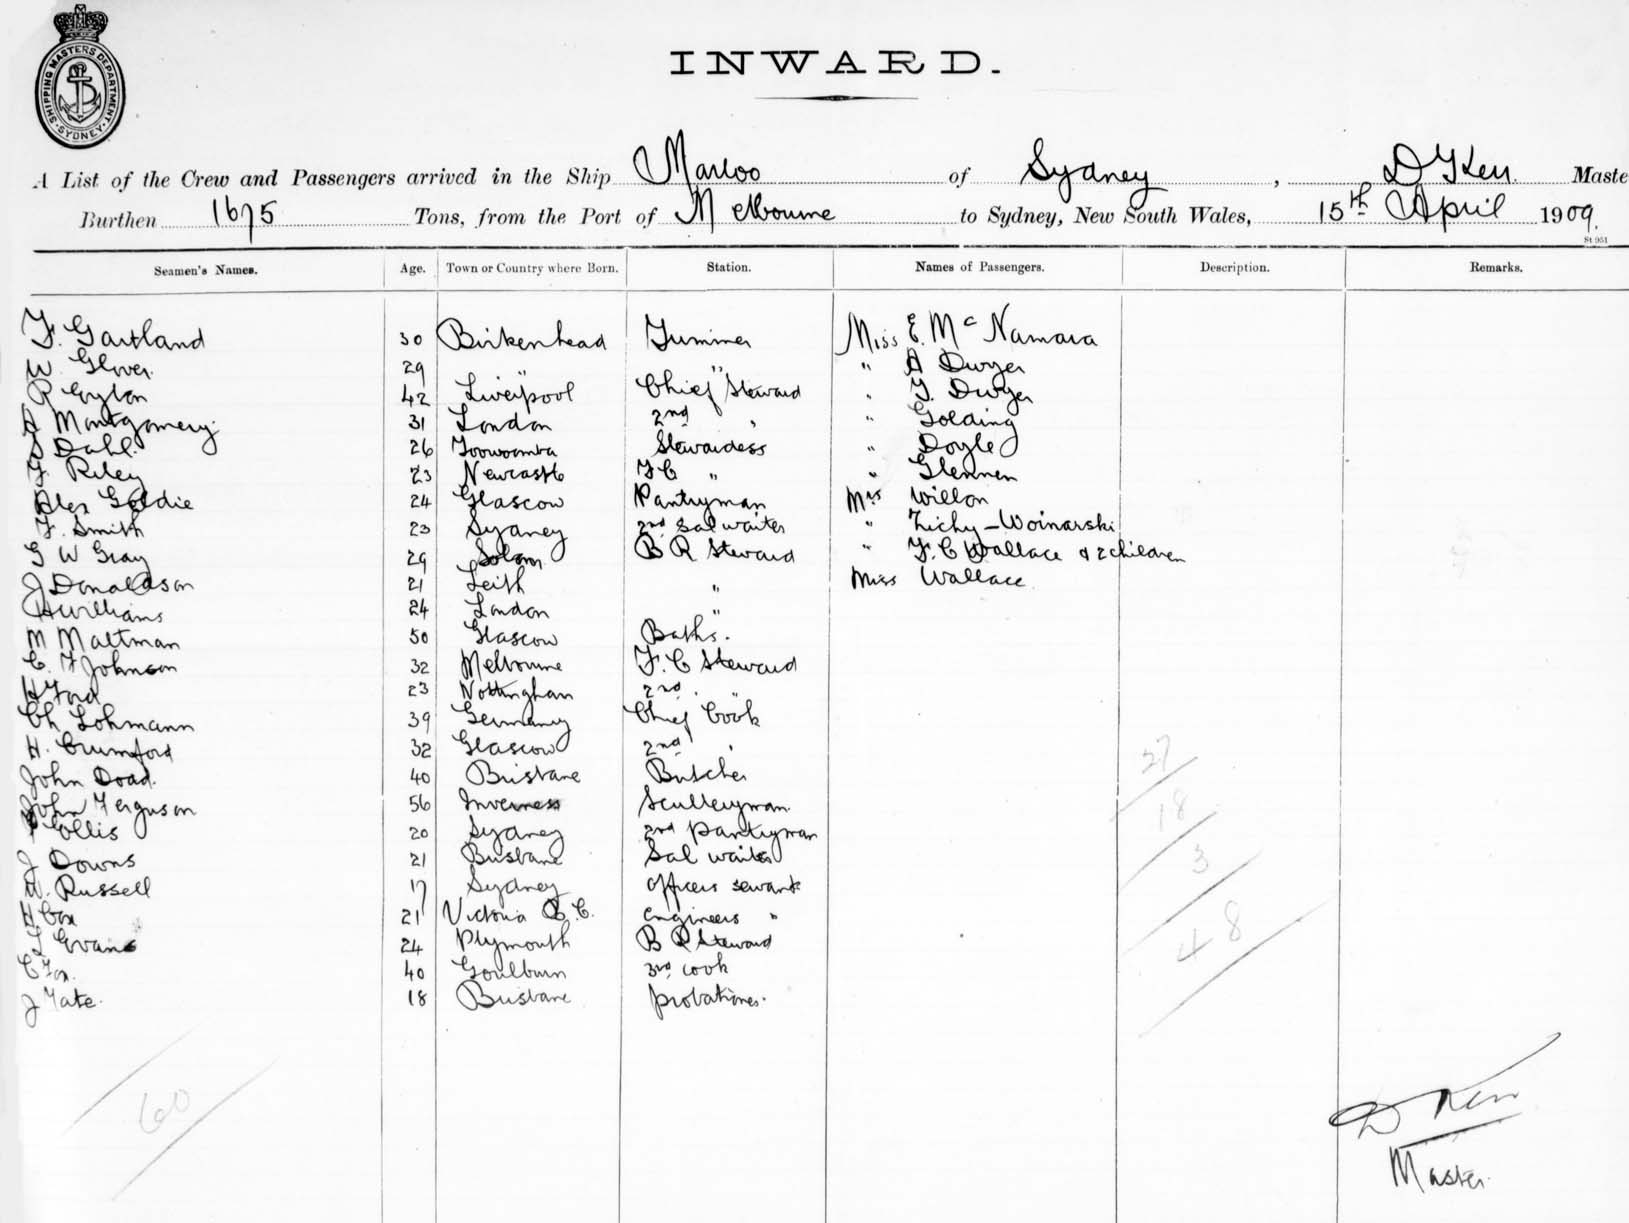 SHIPPING MASTERS DEPARTMENT SYDNEY
INWARD.
A List of the Crew and Passengers arrived in the Ship Marloo of Sydney, D Y Kerr. Maste
Burthen 1675 Tons, from the Port of Melbourne to Sydney, New South Wales, 15th April 1909.
St 951
Seamen's Names. Age. Town or Country where Born. Station. Names of Passengers. Description. Remarks.
F. Gartland 30 Birkenhead Trimmer Miss E. McNamara
W. Glover. 29 " " " A Dwyer
R 42 Liverpool Chief Steward " T. Dwyer
A Montgomery 31 London 2nd " " Golding
S Dahl. 26 Toowoomba Stewardess " Doyle
F. Riley 23 Newcastle F C " " Glennen
Alex Goldie 24 Glascow Pantryman Mrs Willon
F. Smith 23 Sydney 2nd Sal waiter " Zichy-Woinarski
G W Gray 29 B R Steward " F. C Wallace & 2 children
J Donaldson 21 Leith " Miss Wallace.
H Williams 24 London "
M Maltman 50 Glascow Baths.
C. F Johnson 32 Melbourne F. C Steward
H Ford 23 Nottingham 2nd. "
Ch Lohmann 39 Germany Chief Cook
H. Crumford 32 Glascow 2nd "
John Doad. 40 Brisbane Butcher
John Ferguson 56 Inverness Sculleryman.
Collis 20 Sydney 2nd pantryman
J Downs 21 Brisbane Sal waiter
W. Russell 17 Sydney officers servant
H Cox 21 Victoria B.C. engineers "
L Evans 24 Plymouth B R Steward
C Fox. 40 Goulburn 3rd cook
J Tate. 18 Brisbane probationer.
27
18
3
48
60
D Kerr
Master.